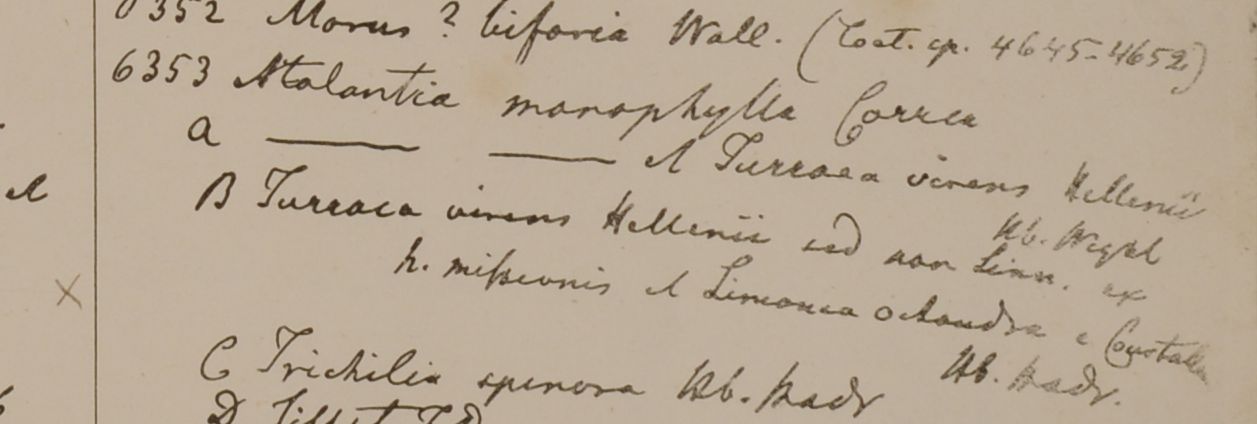 6352 Morus ? bifaria Wall. (Cat. sp. 4645-4652)
6353 Atalantia monophylla Correa
a ——— ——— et Turraea virens Hellenii
Hb. Wight
B Turraea virens Hellenii sed non Linn. ex
h. missionis et Limonia octandra e
Hb. Madr.
C Trichilia spinosa Hb. Madr
D